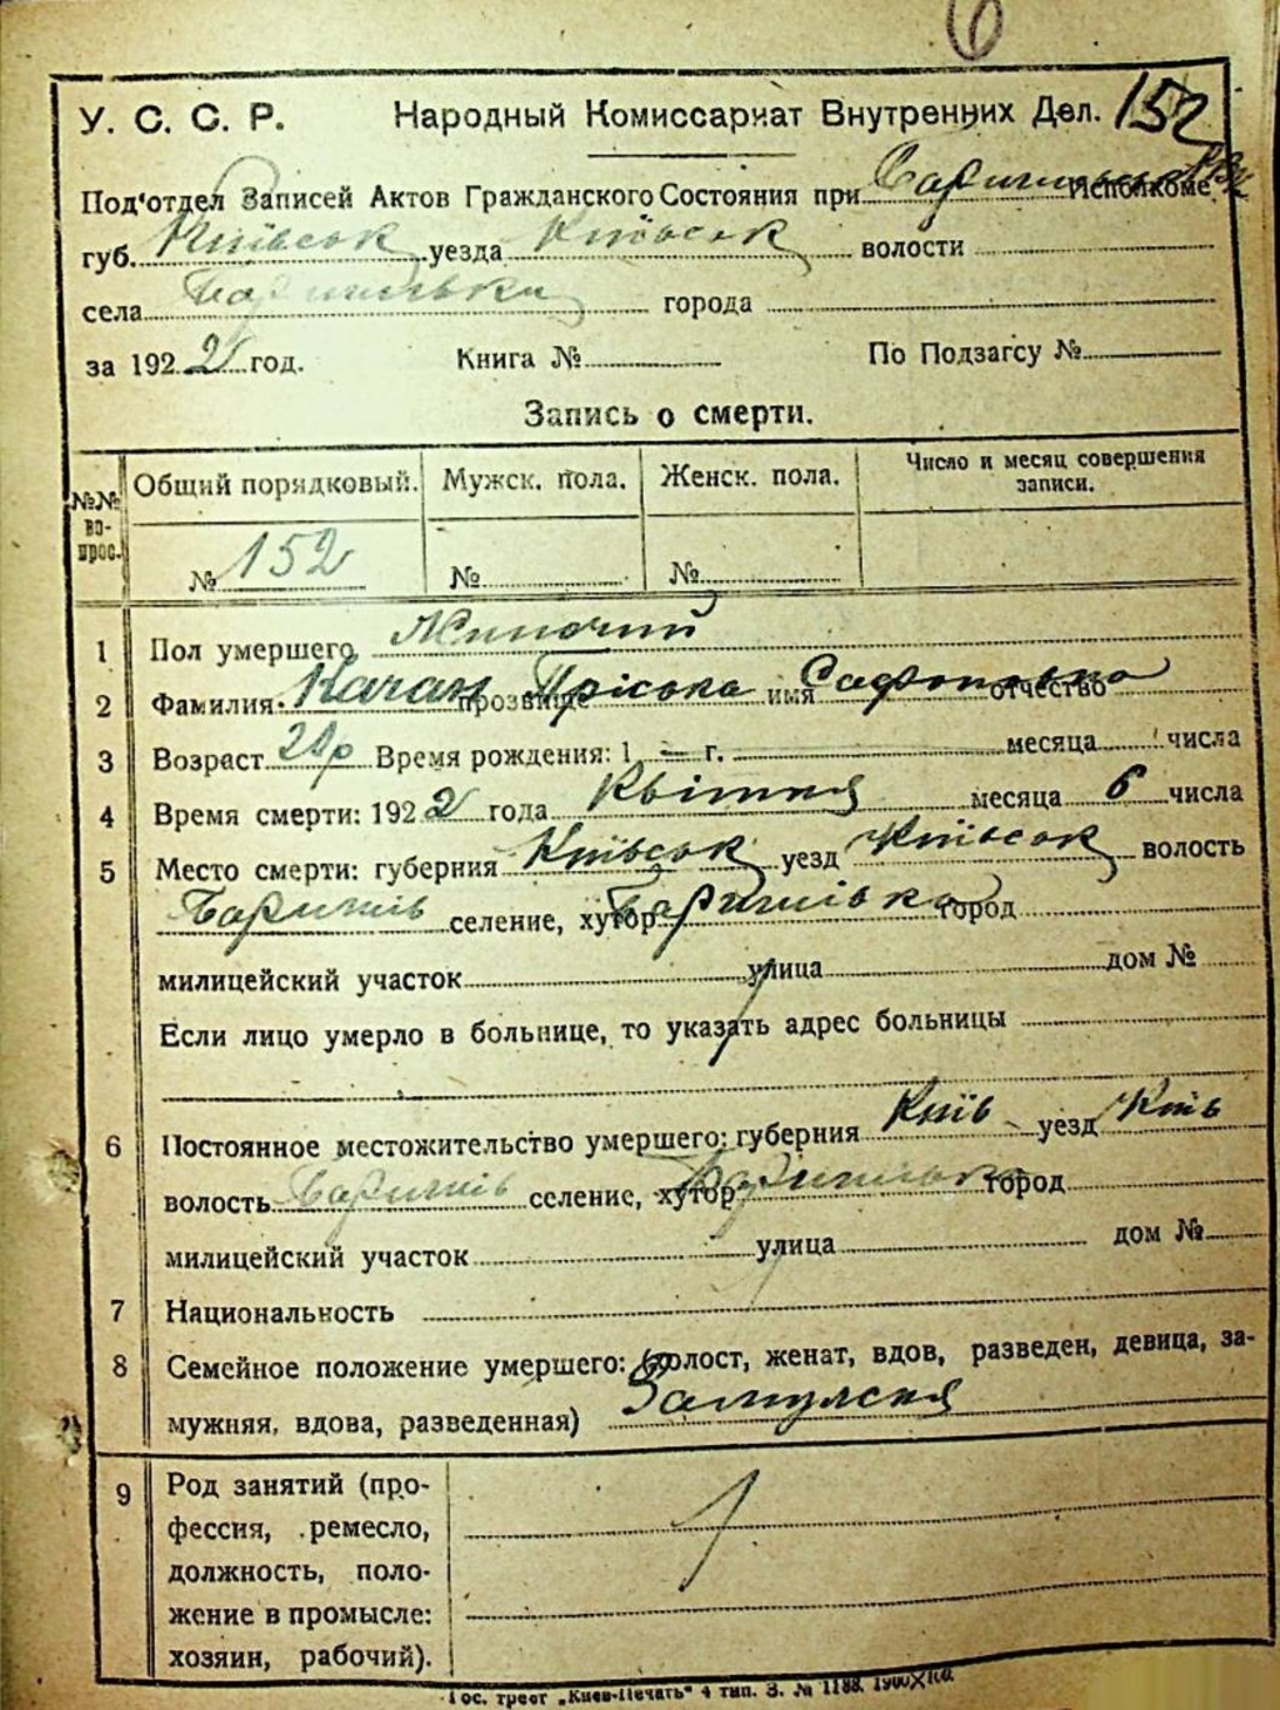 6
У. С. С. Р. Народный Комиссариат Внутренних Дел. 152
Под'отдел Записей Актов Гражданского Состояния при Исполкоме
губ. Київськ уезда Київськ волости
села Баришівка города
за 1922 год. Книга № По Подзагсу №
Запись о смерти.
№№ во-прос. Общий порядковый. Мужск. пола. Женск. пола. Число и месяц совершения записи.
№ 152 № №
1 Пол умершего Жиночий
2 Фамилия Качан прозвище Пріська имя Сафоновна отчество
3 Возраст Время рождения: 1 — г. месяца числа
4 Время смерти: 1922 года Квітня месяца 6 числа
5 Место смерти: губерния Київськ уезд Київськ волость
Баришів селение, хутор Баришівка город
милицейский участок улица дом №
Если лицо умерло в больнице, то указать адрес больницы
6 Постоянное местожительство умершего: губерния Київ уезд Київ
волость Баришів селение, хутор Баришівка город
милицейский участок улица дом №
7 Национальность
8 Семейное положение умершего: (холост, женат, вдов, разведен, девица, за-
мужняя, вдова, разведенная) Замужня
9 Род занятий (про-
фессия, ремесло,
должность, поло-
жение в промысле:
хозяин, рабочий).
Гос. трест „Киев-Печать" 4 тип. З. № 1188.